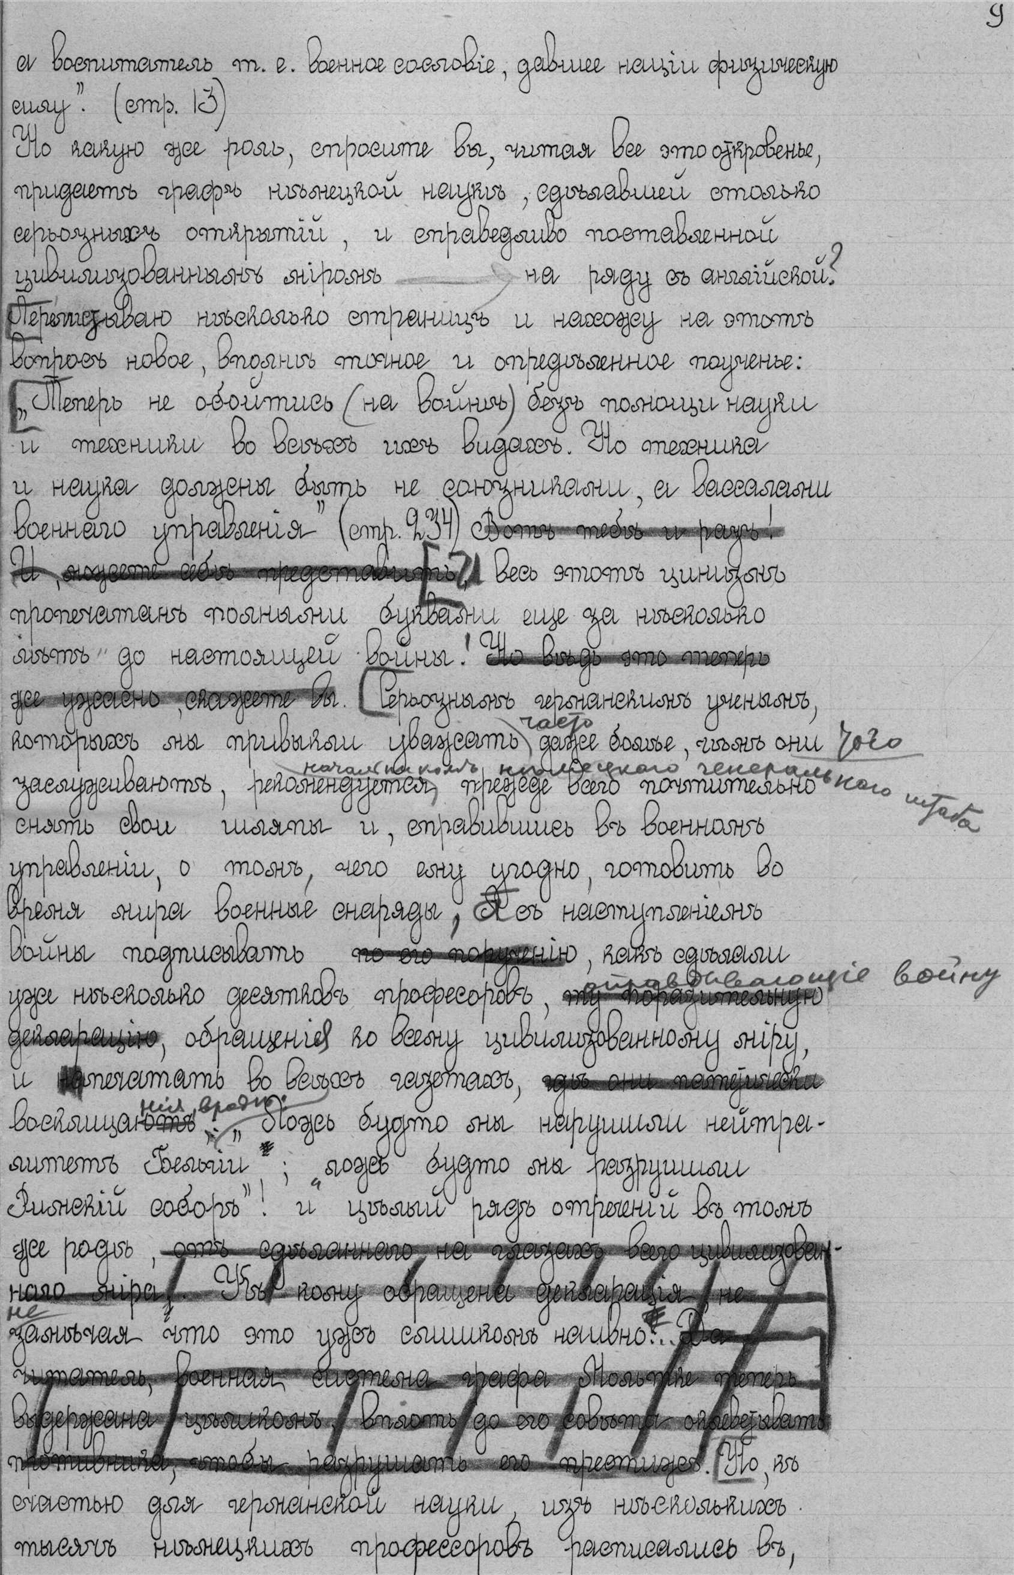 9
а воспитатель т. е. военное сословіе, давшее націи физическую
силу". (стр. 13)
Но какую же роль, спросите вы, читая все это откровенье,
придаетъ графъ нѣмецкой наукѣ, сдѣлавшей столько
серьозныхъ открытій, и справедливо поставленной
цивилизованнымъ міромъ на ряду съ англійской?
Перелистываю нѣсколько страницъ и нахожу на этотъ
вопросъ новое, вполнѣ точное и опредѣленное поученье:
„Теперь не обойтись (на войнѣ) безъ помощи науки
и техники во всѣхъ ихъ видахъ. Но техника
и наука должны быть не союзниками, а вассалами
военнаго управленія" (стр. 234) Вотъ тебѣ и разъ!
И, можете себѣ представить, весь этотъ цинизмъ
пропечатанъ полными буквами еще за нѣсколько
лѣтъ до настоящей войны! Но вѣдь это теперь
же ужасно, скажете вы. Серьознымъ германскимъ ученымъ,
часто
которыхъ мы привыкли уважать даже болѣе, чѣмъ они того
нѣмецкого генеральнаго штаба
заслуживаютъ, рекомендуется прежде всего почтительно
снять свои шляпы и, справившись въ военномъ
управленіи, о томъ, чего ему угодно, готовить во
время мира военные снаряды, А съ наступленіемъ
войны подписывать по его порученію, какъ сдѣлали
оправдывающіе войну
уже нѣсколько десятковъ професоровъ, ту поразительную
декларацію, обращенія ко всему цивилизованному міру,
и печатать во всѣхъ газетахъ, гдѣ они патетически
нія, вродѣ:
восклицаютъ: „Ложь будто мы нарушили нейтра-
литетъ Бельгіи"; „ложь будто мы разрушили
Римскій соборъ"! и цѣлый рядъ отреченій въ томъ
же родѣ, отъ сдѣланнаго на глазахъ всего цивилизован-
наго міра. Къ кому обращена декларація, не
не
замѣчая что это ужъ слишкомъ наивно!... Да
читатель, военная система графа Мольтке теперь
выдержана цѣликомъ, вплоть до его совѣта оклеветывать
противника, чтобы разрушать его престижъ. Но, къ
счастью для германской науки, изъ нѣсколькихъ
тысячъ нѣмецкихъ профессоровъ расписались въ,